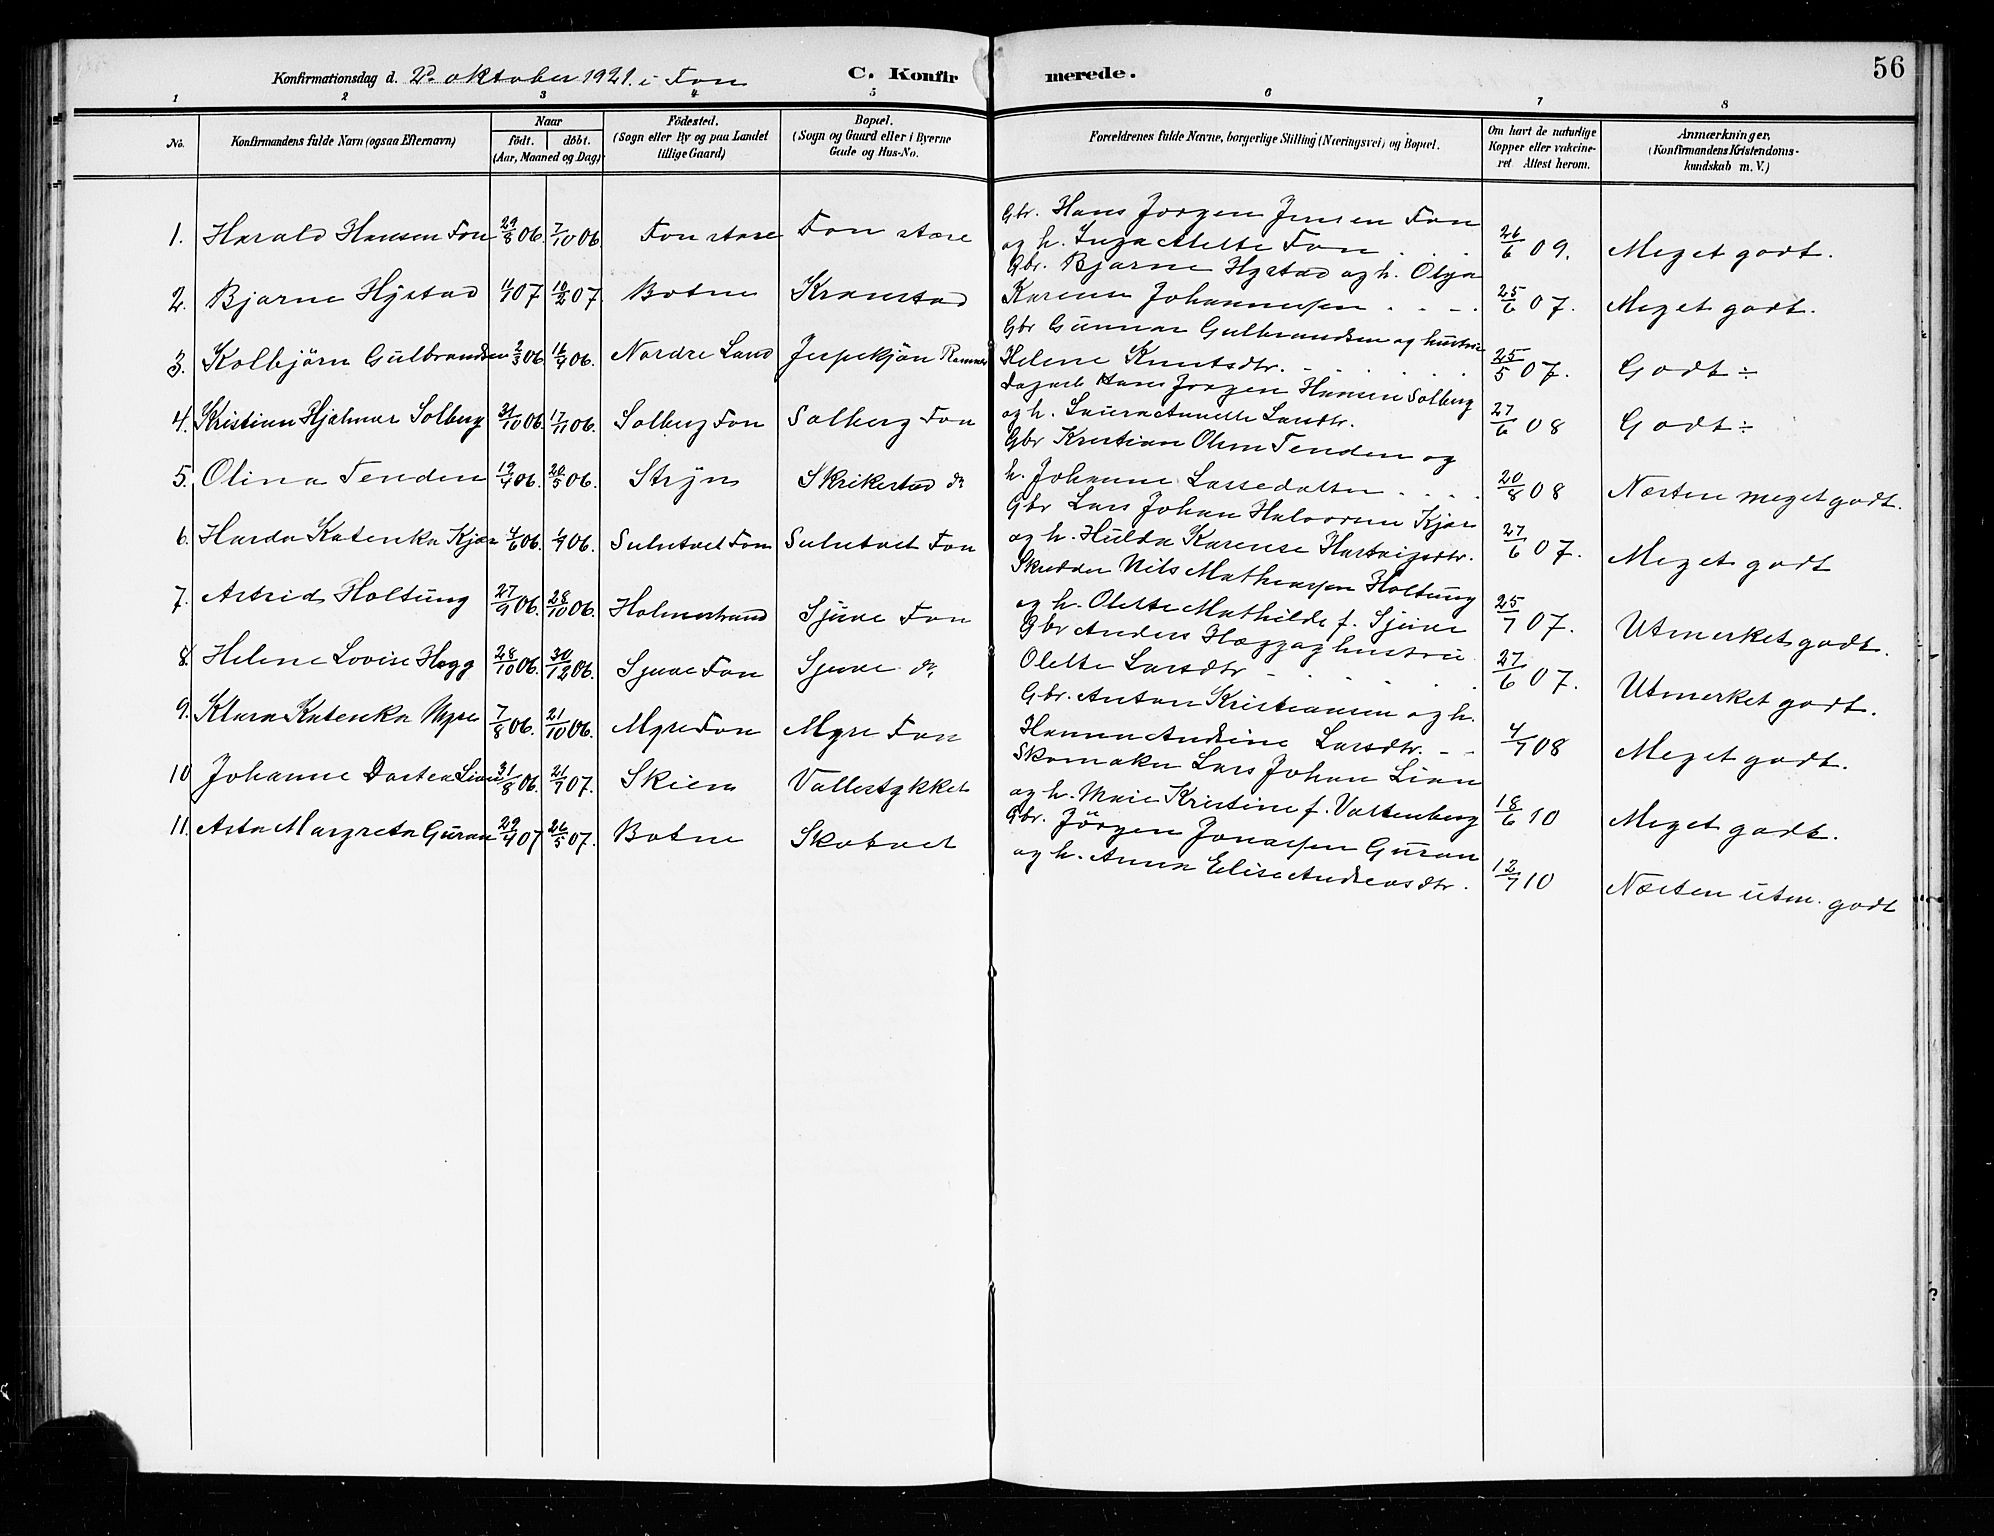 56
Konfirmationsdag d. 2. oktober 1921. i Fon C. Konfirmerede.
1 2 3 4 5 6 7 8
No. Konfirmandens fulde Navn (ogsaa Efternavn) Naar födt. döbt. (Aar, Maaned og Dag) Födested. (Sogn eller By og paa Landet tillige Gaard) Bopæl. (Sogn og Gaard eller i Byerne Gade og Hus-No. Forældrenes fulde Navne, borgerlige Stilling (Næringsvei) og Bopæl. Om havt de naturlige Kopper eller vakcineret Attest herom. Anmærkninger, (Konfirmandens Kristendomskundskab m. V.)
1. Harald Hansen Fon 29/8 06. 7/10 06. Fon store Fon store Gbr. Hans Jorgen Jensen Fon
og h. Inga Alette Fon . . . 26/6 09. Meget godt.
2. Bjarne Hystad 07 10/2 07. Botne Kranstad Gbr. Bjarne Hystad og h. Olga
Karene Johannessen . . - . 25/6 07. Meget godt.
3. Kolbjörn Gulbrandsen 2/3 06. 16/4 06. Nordre Land Jerpekjön Gbr Gunnar Gulbrandsen og hustru
Helene Knutsdtr. 25/5 07. Godt ÷
4. Kristian Hjalmar Solberg 31/10 06. 17/11 06. Solberg Fon Solberg Fon Dagarb Hans Jorgen Hansen Solberg
og h. Laura Annette Larsdtr. 27/6 08 Godt ÷
5. Olina Tenden 19/4 06. 20/5 06. Stryn Skrikestad Gbr Kristian Olsen Tenden og
h. Johanne Lassedatter . . . . 20/8 08 Næsten meget godt.
6. Harda Katenka Kjær 4/6 06. 06. Sulutvet Fon Sulutvet Fon Gbr Lars Johan Halvorsen Kjær
og h. Hulda Karense Hartvigsdtr. 27/6 07. Meget godt
7. Astrid Holtung 27/9 06. 28/10 06. Holmestrand Sjuve Fon Skrædder Nils Mathiassen Holtung
og h. Olette Mathilde f. Sjuve 25/7 07. Utmerket godt.
8. Helene Lovise Hegg 28/10 06. 30/12 06. Sjuve Fon Sjuve Gbr Anders Hægg og hustru
Olette Larsdtr 27/6 07. Utmerket godt.
9. Klara Katenka Myre 7/8 06. 21/10 06. Myre Fon Myre Fon Gbr. Anton Kristiansen og h.
Hanna Andrine Larsdtr. - - 4/7 08 Meget godt.
10 Johanne Dortea Lian 31/8 06. 21/7 07. Skien Vallestykket Skomaker Lars Johan Lian
og h. Marie Kristine f. Valtenberg 18/6 10 Meget godt.
11. Asta Margreta Guran 29/4 07 26/5 07. Botne Skotvet Gbr. Jörgen Jonassen Guran
og h. Anna Elise Andreasdtr. 12/7 10 Næsten utm. godt